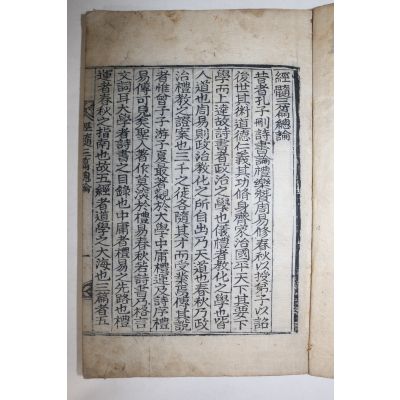 經髓三篇總論
昔者孔子刪詩書論禮樂贊周易修春秋以授弟子以詔
後世其術道德仁義其功修身齊家治國平天下其要下
學而上達故詩書者政治之學也儀禮者教化之學也皆
人道也周易則政治教化之所自出乃天道也春秋乃政
治禮教之證案也三千之徒各隨其才而受業焉傳其說
者惟曾子子游子夏最著觀於大學中庸禮運及詩序禮
易傳可見矣聖人者作莫深於禮易春秋若詩書乃格言
文詞耳大學者詩書之目錄也中庸者禮易之先路也禮
運者春秋之指南也故五經者道學之大海也三篇者五
經髓三篇總論
一